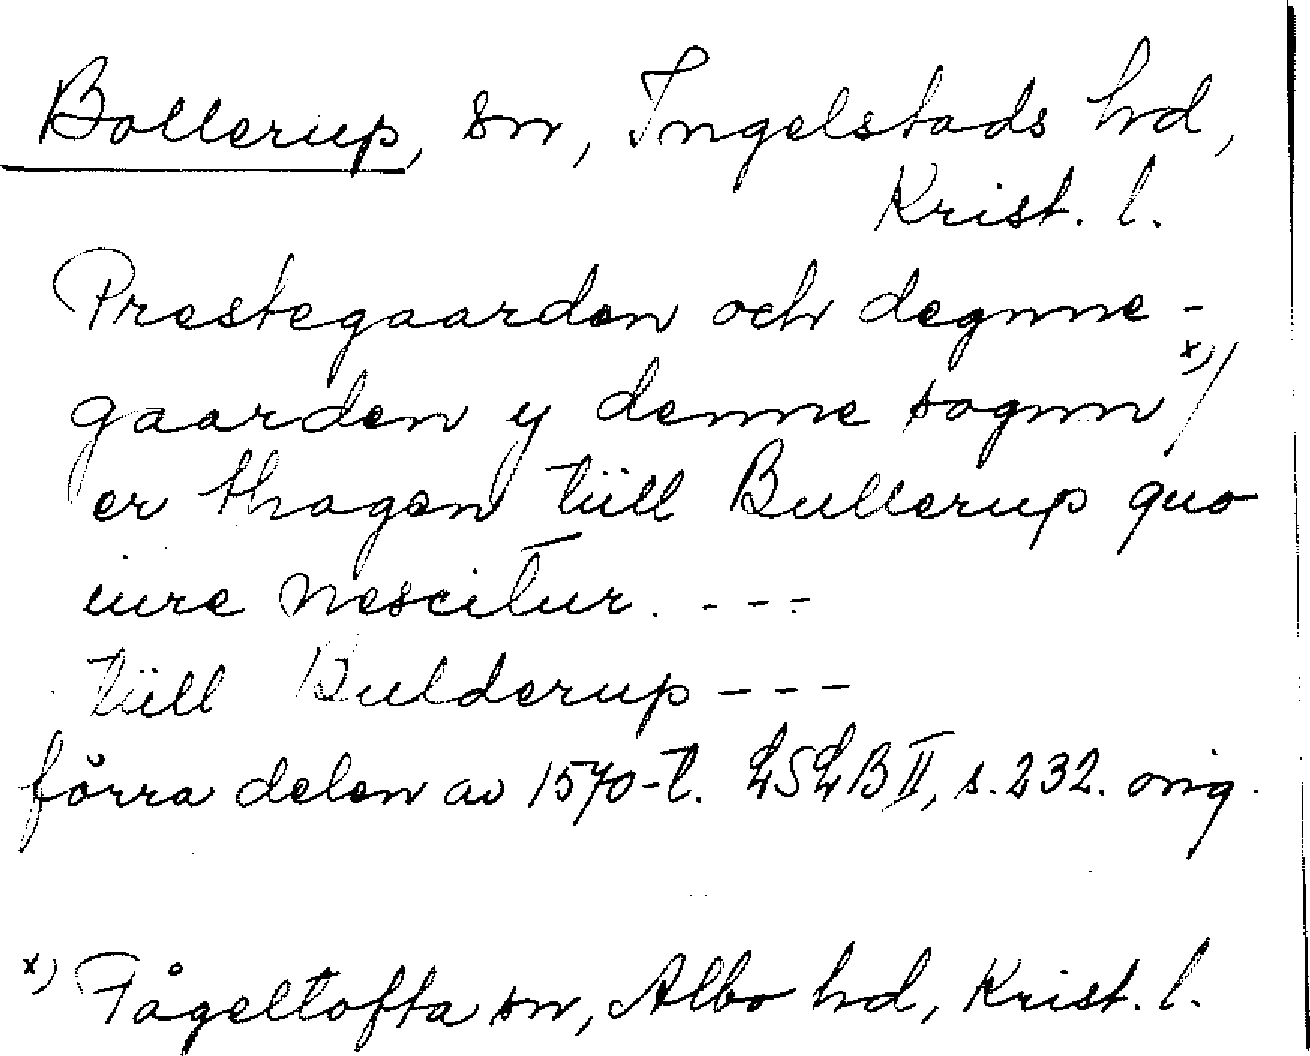 Bollerup, sn, Ingelstads hd,
Krist. l.
Prestegaarden och degnne-
gaarden y denne sognn x)/
er thagen tüll Bullerup quo
iure nescitur. ---
tüll Bulderup ---
förra delen av 1570-t. LSLB II, s. 232. orig.
x) Fågeltofta sn, Albo hd, Krist. l.